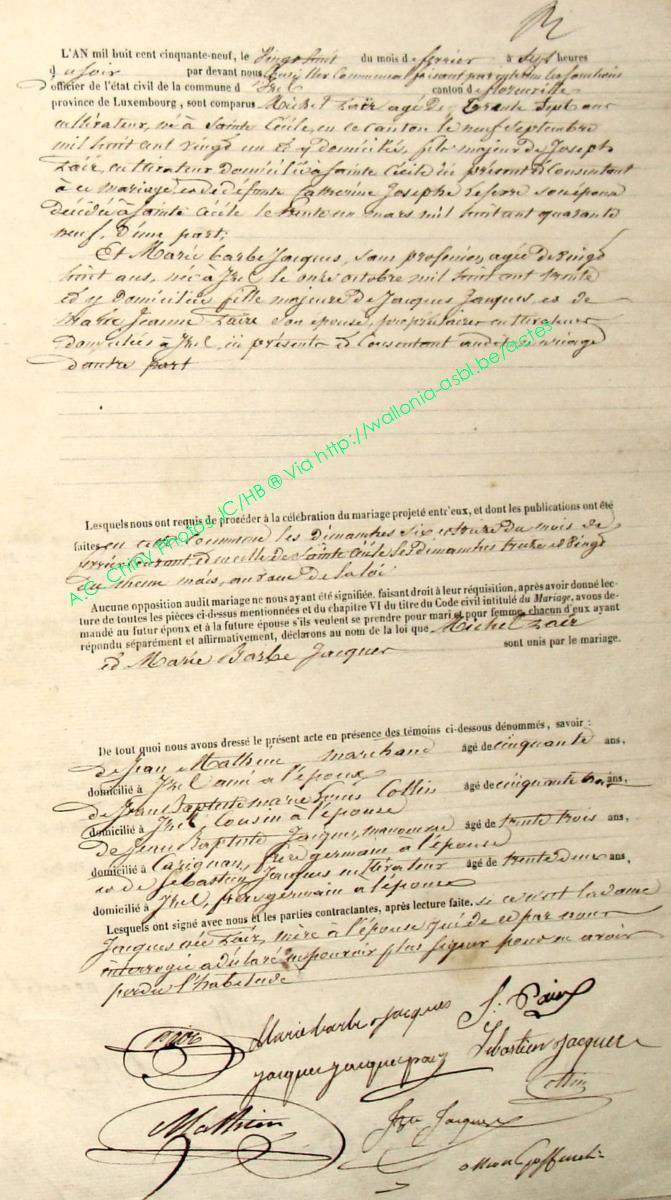 L'AN mil huit cent cinquante-neuf, le Vingt huit du mois de fevrier à Sept heures
du soir par devant nous Conseiller Communal faisant par interim les fonctions
d'officier de l'état civil de la commune d'Izel canton de florenville
province de Luxembourg, sont comparus Michel Zaïr agé de trente Sept ans
cultivateur, né à Sainte Cécile, en ce canton le neuf Septembre
mil huit cent vingt un et y domicilié, fils majeur de Joseph
Zair, cultivateur domicilié à Sainte Cécile ici présent et Consentant
à ce mariage, et de défunte Catherine Josephe son épouse
décédée à Sainte Cécile le trente un mars mil huit cent quarante
neuf, d'une part;
Et Marie barbe Jacques, sans profession, agée de vingt
huit ans, née à Izel le onze octobre mil huit cent trente
et y domiciliée, fille majeure de Jacques Jacques, et de
Marie Jeanne Zaire son épouse, propriétaires cultivateurs
domiciliés à Izel, ici présents et Consentant audit mariage
d'autre part
Lesquels nous ont requis de procéder à la célébration du mariage projeté entr'eux, et dont les publications ont été
faites en cette Commune les dimanches six et treize du mois de
fevrier courant, et en celle de Sainte Cécile les dimanches treize et Vingt
du meme mois, au vœu de la loi
Aucune opposition audit mariage ne nous ayant été signifiée, faisant droit à leur réquisition, après avoir donné lec-
ture de toutes les pièces ci-dessus mentionnées et du chapitre VI du titre du Code civil intitulé du Mariage, avons de-
mandé au futur époux et à la future épouse s'ils veulent se prendre pour mari et pour femme, chacun d'eux ayant
répondu séparément et affirmativement, déclarons au nom de la loi que Michel Zair
et Marie Barbe Jacques sont unis par le mariage.
De tout quoi nous avons dressé le présent acte en présence des témoins ci-dessous dénommés, savoir :
de Jean Mathieu marchand âgé de cinquante ans,
domicilié à Izel ami a l'époux
de Jean Baptiste marie Collin âgé de cinquante trois ans,
domicilié à Izel Cousin à l'épouse
de Jean Baptiste Jacques, manoeuvre âgé de trente trois ans,
domicilié à Carignan, frère germain à l'épouse
et de Sébastien Jacques cultivateur âgé de trente deux ans,
domicilié à Izel, frère germain a l'épouse
Lesquels ont signé avec nous et les parties contractantes, après lecture faite. Si ce n'est la dame
Jacques née Zair, mère à l'épouse qui de ce par nous
interrogée a déclaré ne pouvoir plus signer pour en avoir
perdu l'habitude
Marie barbe Jacques
Jacques Jacques
Sebastien Jacques
Collin
Mathieu
Jacques
A.G. Chiny Photos JC/HB ® Via http://wallonia-asbl.be/actes